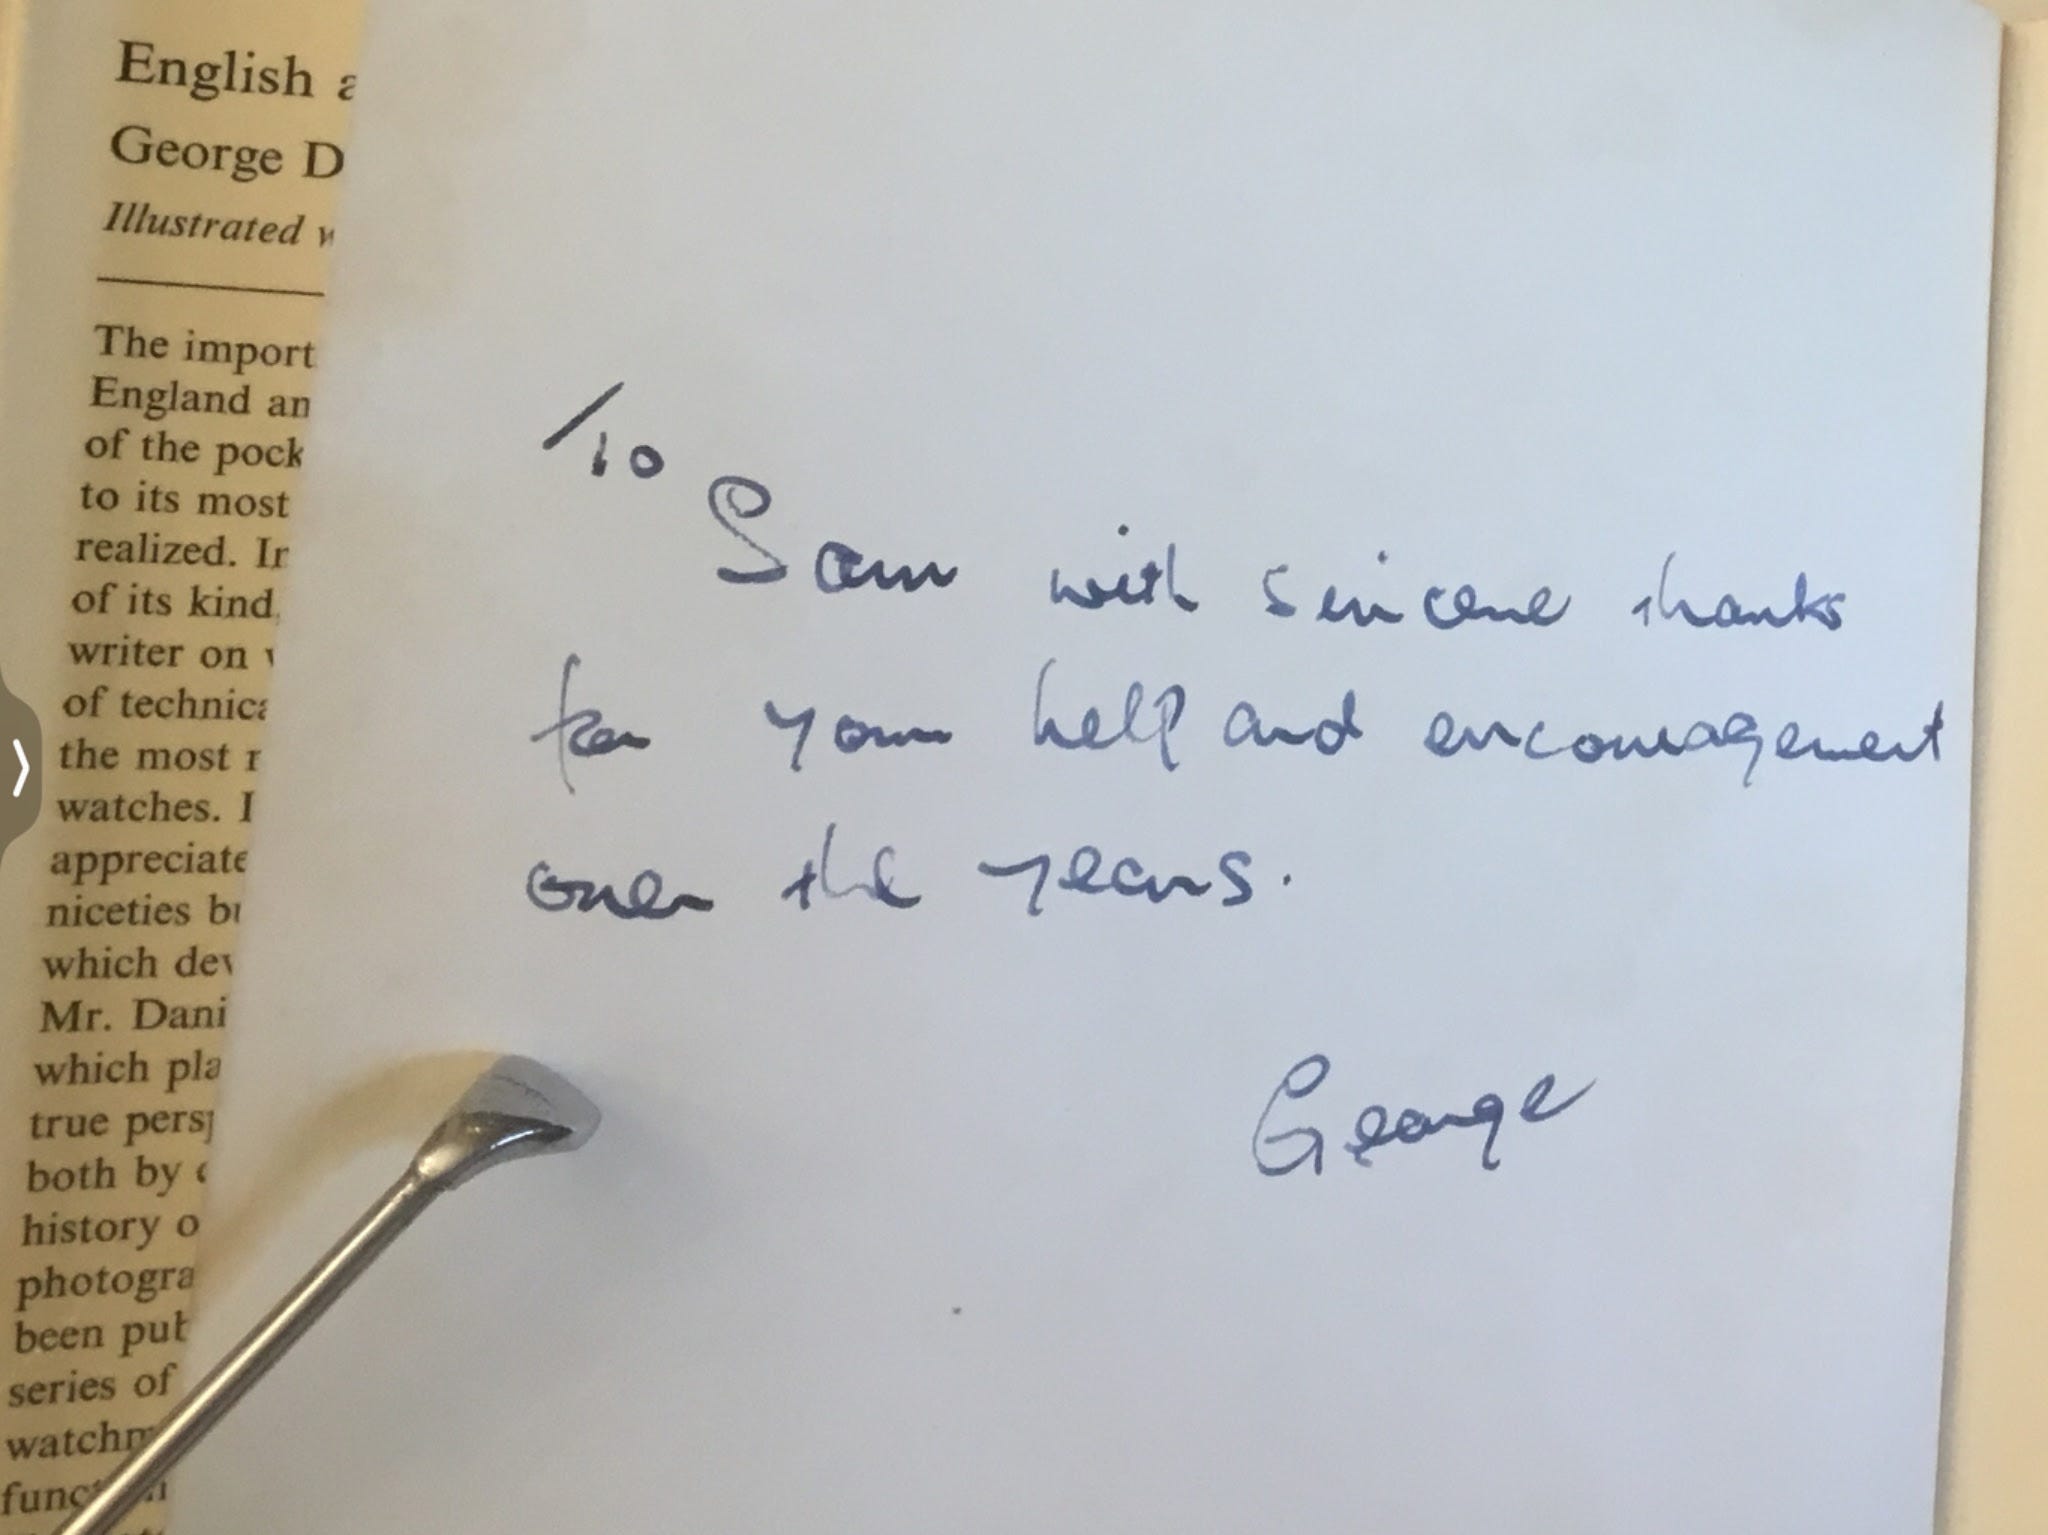 English a
George D
Illustrated w
The import
England an
of the pock
to its most
realized. In
of its kind,
writer on
of technica
the most r
watches. I
appreciate
niceties bu
which dev
Mr. Dani
which pla
true persp
both by
history o
photogra
been put
series of
watchm
To
Sam with sincere thanks
for your help and encouragement
over the years.
George